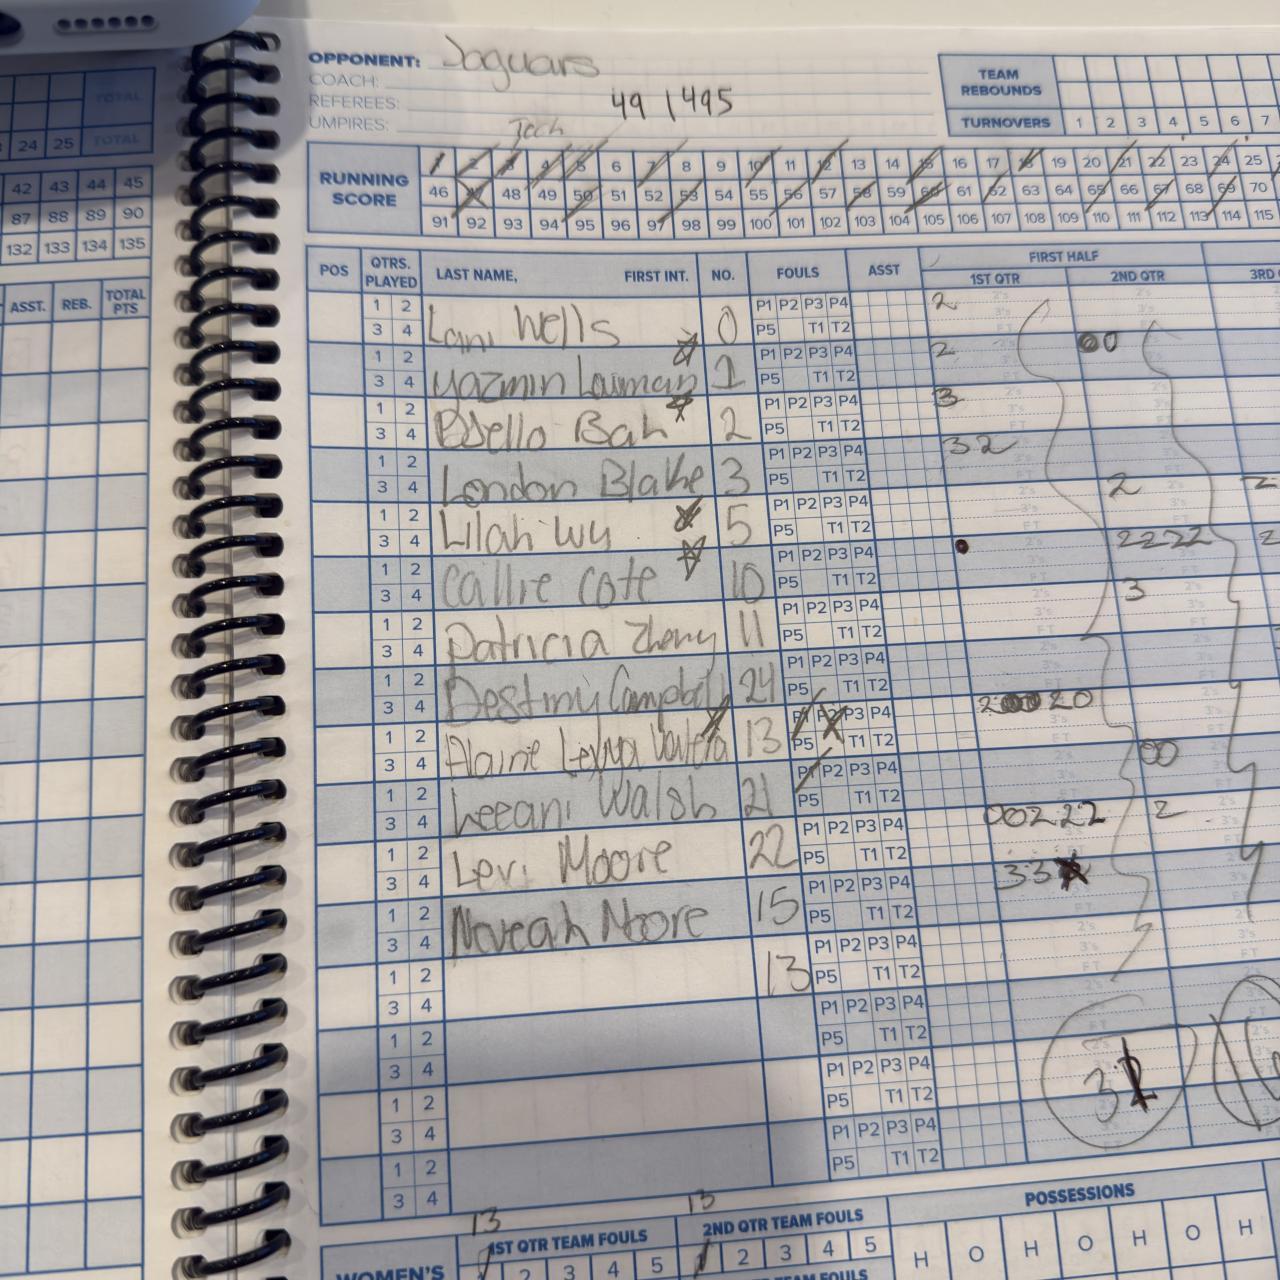 OPPONENT: Jaguars
COACH:
REFEREES: 49 1495
UMPIRES:
Tech
TEAM REBOUNDS
TURNOVERS 1 2 3 4 5 6 7
TOTAL
24 25 TOTAL
42 43 44 45
87 88 89 90
132 133 134 135
ASST. REB. TOTAL PTS
RUNNING SCORE
1 2 3 4 5 6 7 8 9 10 11 12 13 14 15 16 17 18 19 20 21 22 23 24 25
46 47 48 49 50 51 52 53 54 55 56 57 58 59 60 61 62 63 64 65 66 67 68 69 70
91 92 93 94 95 96 97 98 99 100 101 102 103 104 105 106 107 108 109 110 111 112 113 114 115
POS QTRS. PLAYED LAST NAME, FIRST INT. NO. FOULS ASST FIRST HALF
1ST QTR 2ND QTR 3RD
1 2 3 4 Lani Wells 0 P1 P2 P3 P4 P5 T1 T2 2
1 2 3 4 Yazmin Laiman 1 P1 P2 P3 P4 P5 T1 T2 2 0
1 2 3 4 Bah 2 P1 P2 P3 P4 P5 T1 T2 3
1 2 3 4 London Blake 3 P1 P2 P3 P4 P5 T1 T2 32
1 2 3 4 Lilah Wu 5 P1 P2 P3 P4 P5 T1 T2 2 2
1 2 3 4 Callie Cote 10 P1 P2 P3 P4 P5 T1 T2 2222 2
1 2 3 4 Patricia Zheng 11 P1 P2 P3 P4 P5 T1 T2 3
1 2 3 4 Destiny Campbell 24 P1 P2 P3 P4 P5 T1 T2
1 2 3 4 13 P1 P2 P3 P4 P5 T1 T2 20020
1 2 3 4 Leeani Walsh 21 P1 P2 P3 P4 P5 T1 T2 00
1 2 3 4 Levi Moore 22 P1 P2 P3 P4 P5 T1 T2 00222 2
1 2 3 4 Noveah Moore 15 P1 P2 P3 P4 P5 T1 T2 33
1 2 3 4 13 P1 P2 P3 P4 P5 T1 T2
1 2 3 4 P1 P2 P3 P4 P5 T1 T2
1 2 3 4 P1 P2 P3 P4 P5 T1 T2
1 2 3 4 P1 P2 P3 P4 P5 T1 T2
13 13
1ST QTR TEAM FOULS 2ND QTR TEAM FOULS POSSESSIONS
WOMEN'S 1 2 3 4 5 1 2 3 4 5 H O H O H O H